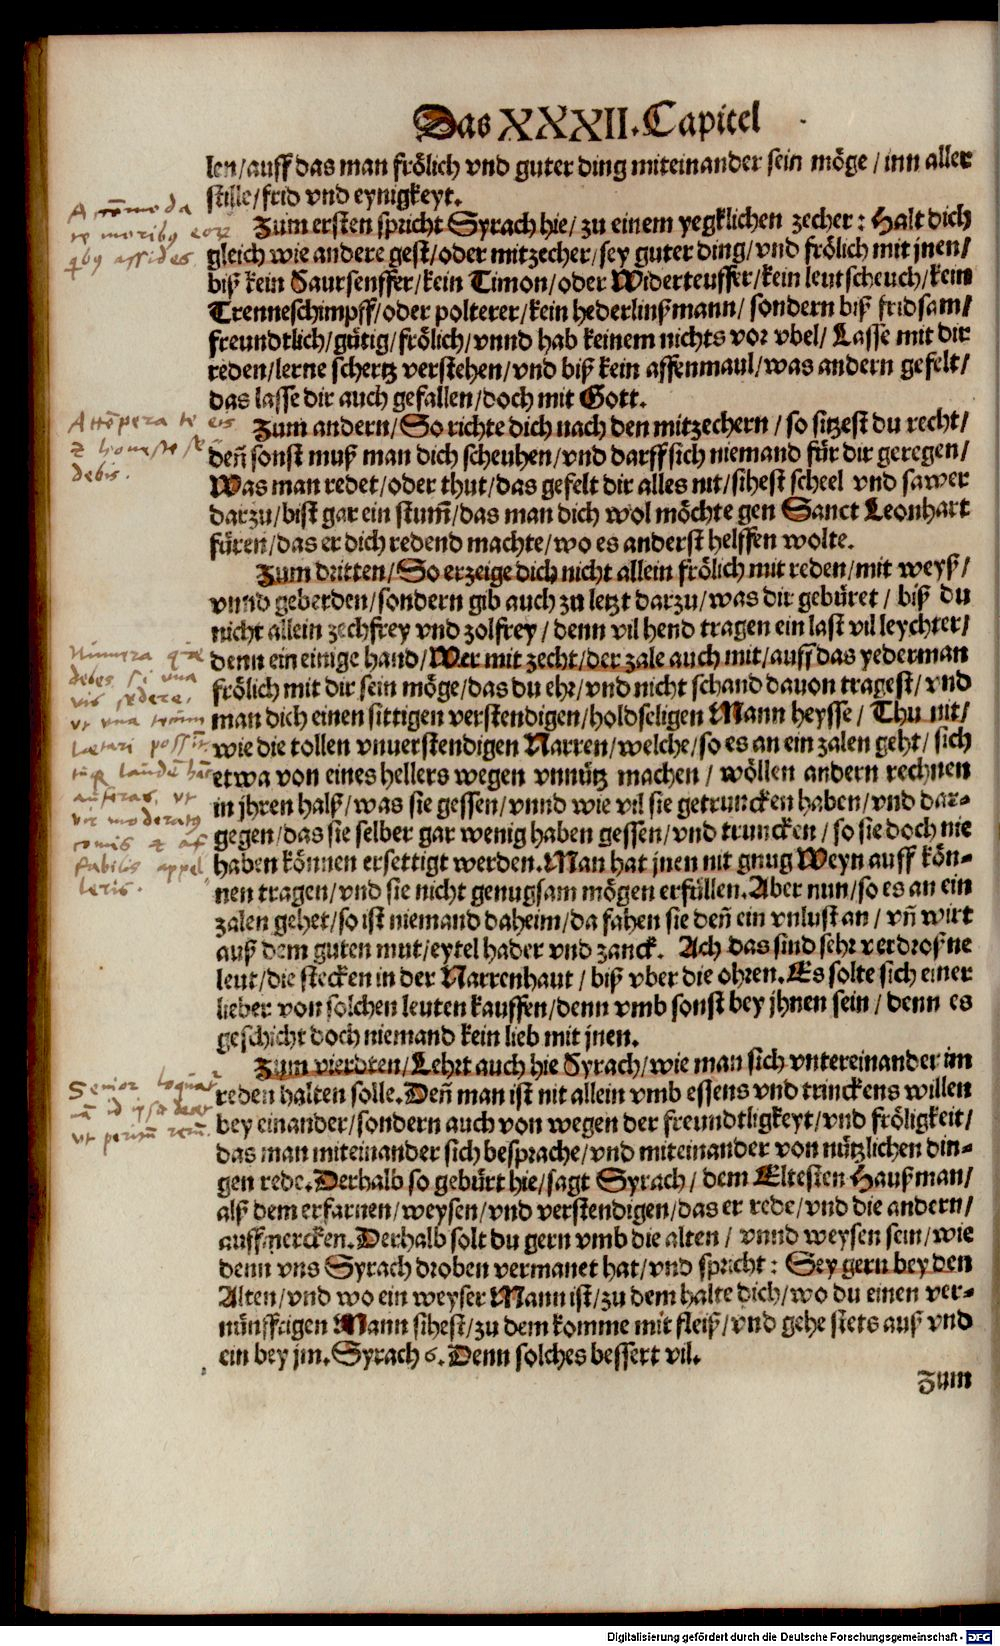 Das XXXII. Capitel
len/ auff das man frölich vnd guter ding miteinander sein möge / inn aller
stille/ frid vnd eynigkeyt.
Zum ersten spricht Syrach hie/ zu einem yegklichen zecher: Halt dich
gleich wie andere gest/ oder mitzecher/ sey guter ding/ vnd frölich mit jnen/
biß kein Saursenffer/ kein Timon/ oder Widerteuffer/ kein leutscheuch/ kein
Trenneschimpff/ oder polterer/ kein hederlinßmann/ sondern biß fridsam/
freundtlich/ gütig/ frölich/ vnnd hab keinem nichts vor vbel/ Lasse mit dir
reden/ lerne schertz verstehen/ vnd biß kein affenmaul/ was andern gefelt/
das lasse dir auch gefallen/ doch mit Gott.
Zum andern/ So richte dich nach den mitzechern/ so sitzest du recht/
deñ sonst muß man dich scheuhen/ vnd darff sich niemand für dir geregen/
Was man redet/ oder thut/ das gefelt dir alles nit/ sihest scheel vnd sawer
darzu/ bist gar ein stum̃/ das man dich wol möchte gen Sanct Leonhart
füren/ das er dich redend machte/ wo es anderst helffen wolte.
Zum dritten/ So erzeige dich nicht allein frölich mit reden/ mit weyß/
vnnd geberden/ sondern gib auch zu letzt darzu/ was dir gebüret / biß du
nicht allein zechfrey vnd zolfrey / denn vil hend tragen ein last vil leychter/
denn ein einige hand/ Wer mit zecht/ der zale auch mit/ auff das yederman
frölich mit dir sein möge/ das du ehr/ vnd nicht schand dauon tragest/ vnd
man dich einen sittigen verstendigen/ holdseligen Mann heysse / Thu nit/
wie die tollen vnuerstendigen Narren/ welche/ so es an ein zalen geht/ sich
etwa von eines hellers wegen vnnütz machen / wöllen andern rechnen
in jhren halß/ was sie gessen/ vnnd wie vil sie getruncken haben/ vnd dar-
gegen/ das sie selber gar wenig haben gessen/ vnd truncken / so sie doch nie
haben können ersettigt werden. Man hat jnen nit gnug Weyn auff kön-
nen tragen/ vnd sie nicht genugsam mögen erfüllen. Aber nun/ so es an ein
zalen gehet/ so ist niemand daheim/ da fahen sie deñ ein vnlust an / vñ wirt
auß dem guten mut/ eytel hader vnd zanck. Ach das sind sehr verdroßne
leut/ die stecken in der Narrenhaut / biß vber die ohren. Es solte sich einer
lieber von solchen leuten kauffen/ denn vmb sonst bey jhnen sein / denn es
geschicht doch niemand kein lieb mit jnen.
Zum vierdten/ Lehrt auch hie Syrach/ wie man sich vntereinander im
reden halten solle. Deñ man ist nit allein vmb essens vnd trinckens willen
bey einander/ sondern auch von wegen der freundtligkeyt/ vnd fröligkeit/
das man miteinander sich besprache/ vnd miteinander von nützlichen din-
gen rede. Derhalb so gebürt hie/ sagt Syrach / dem Eltesten Haußman/
alß dem erfarnen/ weysen/ vnd verstendigen/ das er rede/ vnd die andern/
auffmercken. Derhalb solt du gern vmb die alten / vnnd weysen sein/ wie
denn vns Syrach droben vermanet hat/ vnd spricht: Sey gern bey den
Alten/ vnd wo ein weyser Mann ist/ zu dem halte dich/ wo du einen ver-
nünfftigen Mann sihest/ zu dem komme mit fleiß/ vnd gehe stets auß vnd
ein bey jm. Syrach 6. Denn solches bessert vil.
Zum
Accõmoda
te moribus eorz
qbus assides.
Attẽpera te eis
debis.
Numera quae
debes, si una
vis sedere,
laetari possint
auferas, ut
vir moderatus
comis et af
fabilis appel
leris.
Senior loquat
Digitalisierung gefördert durch die Deutsche Forschungsgemeinschaft - DFG